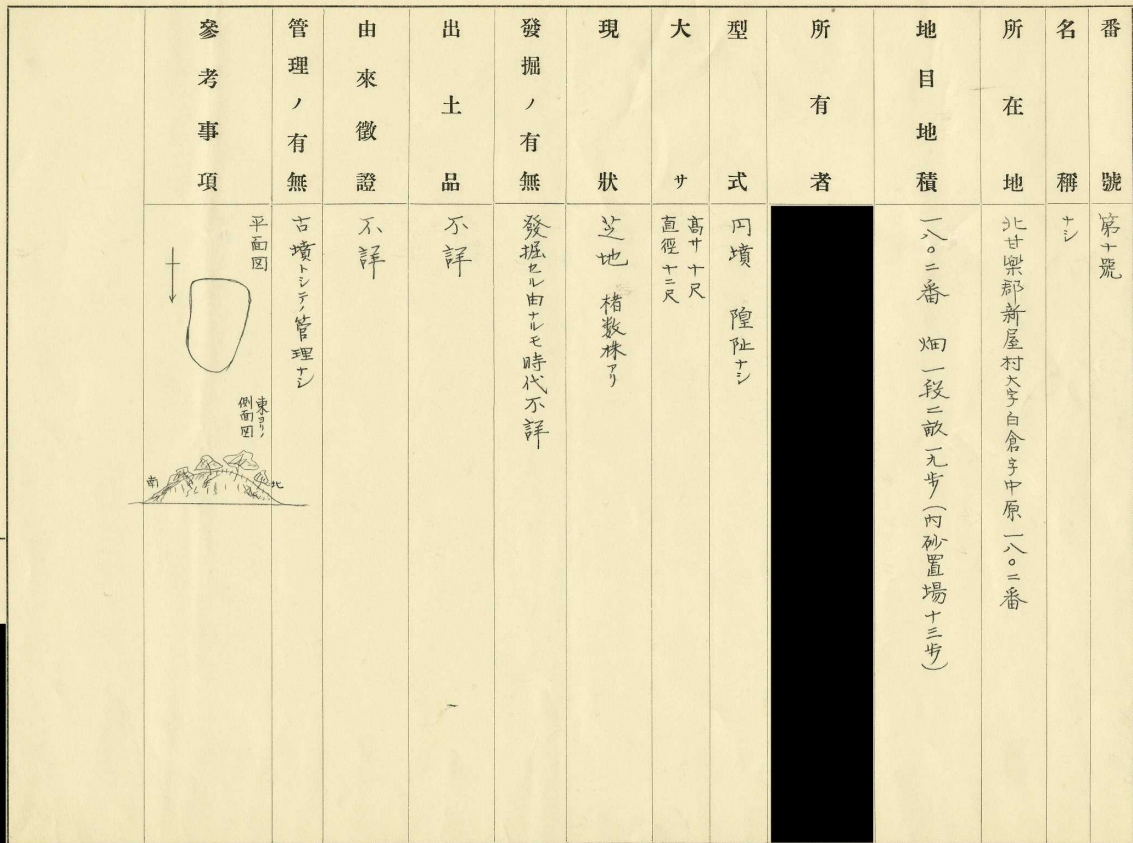 番號
第十號
名稱
ナシ
所在地
北甘楽郡新屋村大字白倉字中原一八〇二番
地目地積
一八〇二番 畑一段二畝一九歩(内砂置場十三歩)
所有者
型式
円墳 隍阯ナシ
大サ
高サ十尺
直徑十二尺
現狀
芝地 楮数株アリ
發掘ノ有無
發掘セル由ナルモ時代不詳
出土品
不詳
由來徵證
不詳
管理ノ有無
古墳トシテノ管理ナシ
參考事項
平面図
東ヨリノ
側面図
南
北